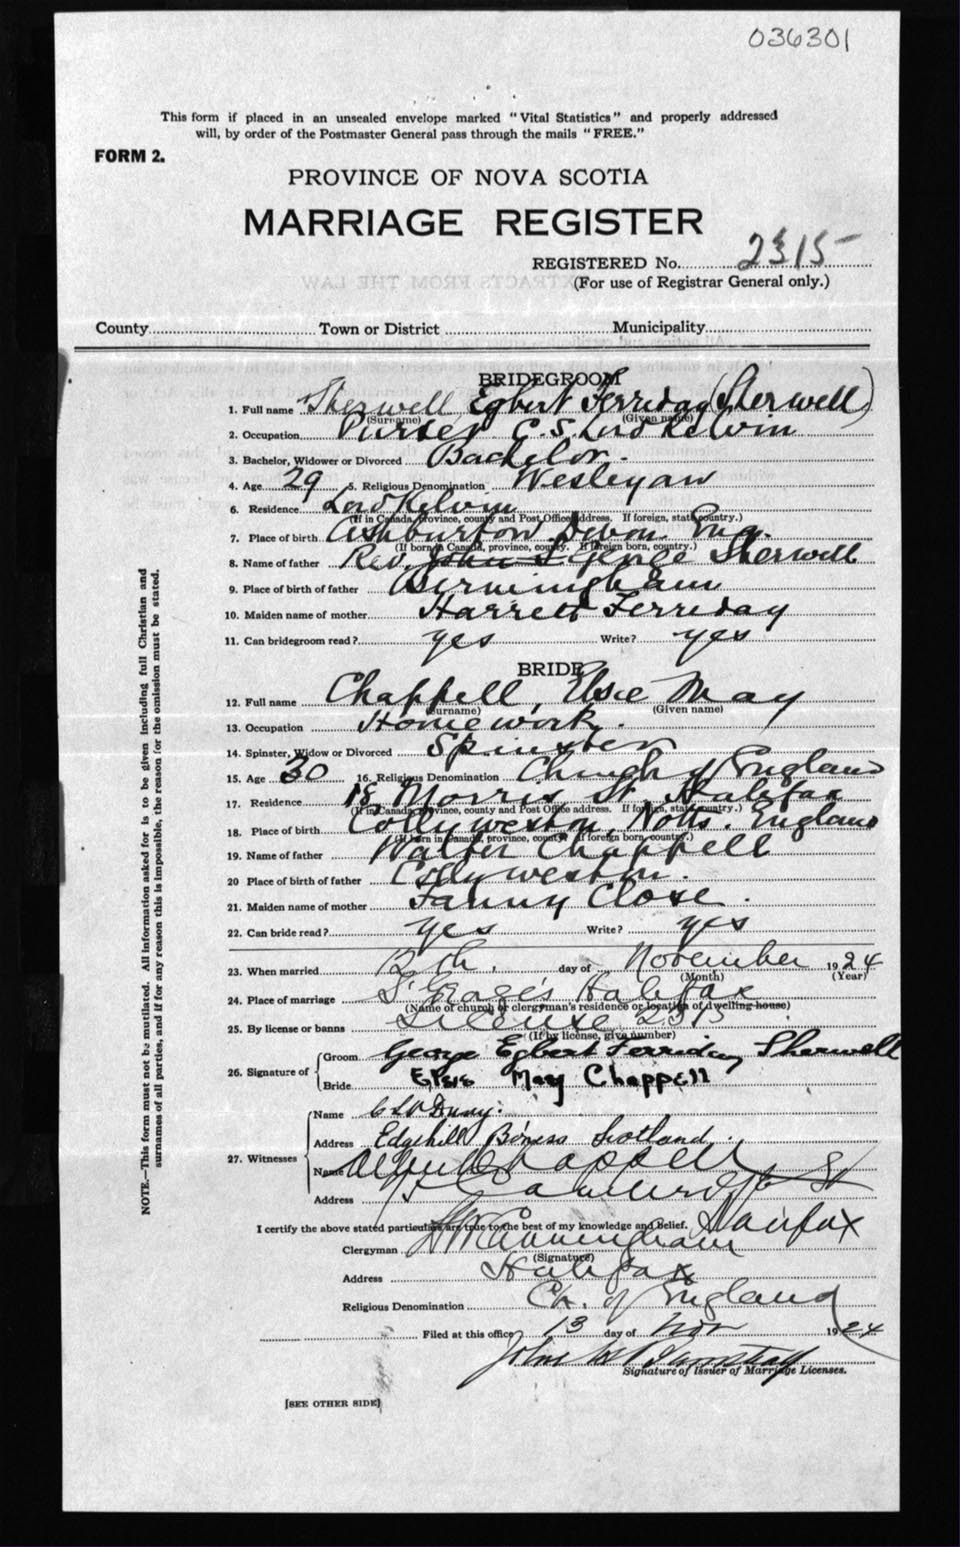 036301
This form if placed in an unsealed envelope marked "Vital Statistics" and properly addressed
will, by order of the Postmaster General pass through the mails "FREE."
FORM 2.
PROVINCE OF NOVA SCOTIA
MARRIAGE REGISTER
REGISTERED No. 2315
(For use of Registrar General only.)
County Town or District Municipality
BRIDEGROOM
1. Full name Sherwell Egbert Ferriday (Sherwell)
(Surname) (Given name)
2. Occupation Purser C.S. Lord Kelvin
3. Bachelor, Widower or Divorced Bachelor.
4. Age 29 5. Religious Denomination Wesleyan
6. Residence Lord Kelvin
(If in Canada, province, county and Post Office address. If foreign, state country.)
7. Place of birth Ashburton Devon Eng.
(If born in Canada, province, county. If foreign born, country.)
8. Name of father Rev. John S. George Sherwell
9. Place of birth of father Birmingham
10. Maiden name of mother Harriett Ferriday
11. Can bridegroom read? yes Write? yes
BRIDE
12. Full name Chappell, Elsie May
(Surname) (Given name)
13. Occupation Homework.
14. Spinster, Widow or Divorced Spinster
15. Age 30 16. Religious Denomination Church of England
17. Residence 18 Morris St. Halifax
(If in Canada, province, county and Post Office address. If foreign, state country.)
18. Place of birth Collyweston, Notts. England
(If born in Canada, province, county. If foreign born, country.)
19. Name of father Walter Chappell
20 Place of birth of father Collyweston.
21. Maiden name of mother Fanny Close.
22. Can bride read? yes Write? yes
23. When married 12th, day of November 1924
(Month) (Year)
24. Place of marriage St George's Halifax
(Name of church or clergyman's residence or location of dwelling house)
25. By license or banns License 2315
(If by license, give number)
26. Signature of Groom George Egbert Ferriday Sherwell
Bride Elsie May Chappell
27. Witnesses Name
Address Edgehill Bo'ness Scotland.
Name Chappell
Address St
I certify the above stated particulars are true to the best of my knowledge and Belief. Halifax
Clergyman Cunningham
(Signature)
Address Halifax
Religious Denomination Ch. of England
Filed at this office 13 day of Nov 1924
John
Signature of Issuer of Marriage Licenses.
[SEE OTHER SIDE]
NOTE.—This form must not be mutilated. All information asked for is to be given including full Christian and
surnames of all parties, and if for any reason this is impossible, the reason for the omission must be stated.